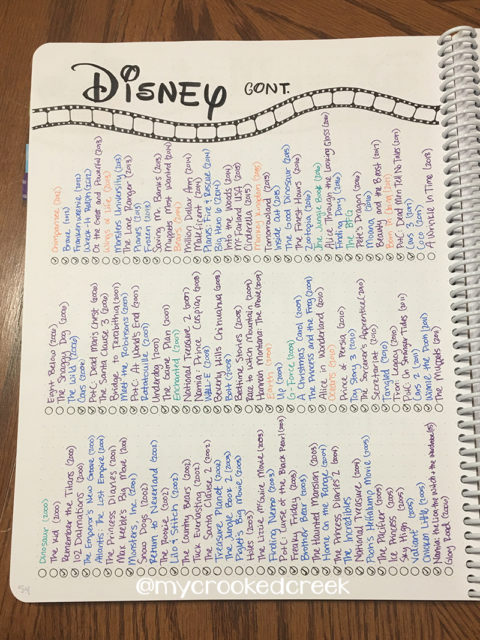 DISNEY CONT.
Dinosaur (2000)
The Kid (2000)
Remember the Titans (2000)
102 Dalmatians (2000)
The Emperor's New Groove (2000)
Atlantis: The Lost Empire (2001)
The Princess Diaries (2001)
Max Keeble's Big Move (2001)
Monsters, Inc. (2001)
Snow Dogs (2002)
Return to Neverland (2002)
The Rookie (2002)
Lilo & Stitch (2002)
The Country Bears (2002)
Tuck Everlasting (2002)
The Santa Clause 2 (2002)
Treasure Planet (2002)
The Jungle Book 2 (2003)
Piglet's Big Movie (2003)
Holes (2003)
The Lizzie McGuire Movie (2003)
Finding Nemo (2003)
PotC: Curse of the Black Pearl (2003)
Freaky Friday (2003)
Brother Bear (2003)
The Haunted Mansion (2003)
Home on the Range (2004)
The Princess Diaries 2 (2004)
The Incredibles
National Treasure (2004)
Pooh's Heffalump Movie (2005)
The Pacifier (2005)
Ice Princess (2005)
Sky High (2005)
Valiant (2005)
Chicken Little (2005)
Narnia: the Lion, the Witch + the Wardrobe (05)
Glory Road (2006)
Eight Below (2006)
The Shaggy Dog (2006)
The Wild (2006)
Cars (2006)
PotC: Dead Man's Chest (2006)
The Santa Clause 3 (2006)
Bridge to Terabithia (2007)
Meet the Robinsons (2007)
PotC: At World's End (2007)
Ratatouille (2007)
Underdog (2007)
The Game Plan (2007)
Enchanted (2007)
National Treasure 2 (2007)
Narnia: Prince Caspian (2008)
WALL-E (2008)
Beverly Hills Chihuahua (2008)
Bolt (2008)
Bedtime Stories (2008)
Race to Witch Mountain (2009)
Hannah Montana: The Movie (2009)
Earth (2009)
Up (2009)
G-Force (2009)
A Christmas Carol (2009)
The Princess and the Frog (2009)
Alice in Wonderland (2010)
Oceans (2010)
Prince of Persia (2010)
Toy Story 3 (2010)
Sorcerer's Apprentice (2010)
Secretariat (2010)
Tangled (2010)
Tron: Legacy (2010)
PotC: On Stranger Tides (2011)
Cars 2 (2011)
Winnie the Pooh (2011)
The Muppets (2011)
Chimpanzee (2012)
Brave (2012)
Frankenweenie (2012)
Wreck-it Ralph (2012)
Oz the Great and Powerful (2013)
Wings of Life (2013)
Monsters University (2013)
The Lone Ranger (2013)
Planes (2013)
Frozen (2013)
Saving Mr. Banks (2013)
Muppets Most Wanted (2014)
Bears (2014)
Million Dollar Arm (2014)
Maleficent (2014)
Planes: Fire & Rescue (2014)
Big Hero 6 (2014)
Into the Woods (2014)
McFarland, USA (2015)
Cinderella (2015)
Monkey Kingdom (2015)
Tomorrowland (2015)
Inside Out (2015)
The Good Dinosaur (2015)
The Finest Hours (2016)
Zootopia (2016)
The Jungle Book (2016)
Alice Through the Looking Glass (2016)
Finding Dory (2016)
The BFG
Pete's Dragon (2016)
Moana (2016)
Beauty and the Beast (2017)
Born in China (2017)
PotC: Dead Men Tell No Tales (2017)
Cars 3 (2017)
Coco (2017)
A Wrinkle in Time (2018)
@mycrookedcreek